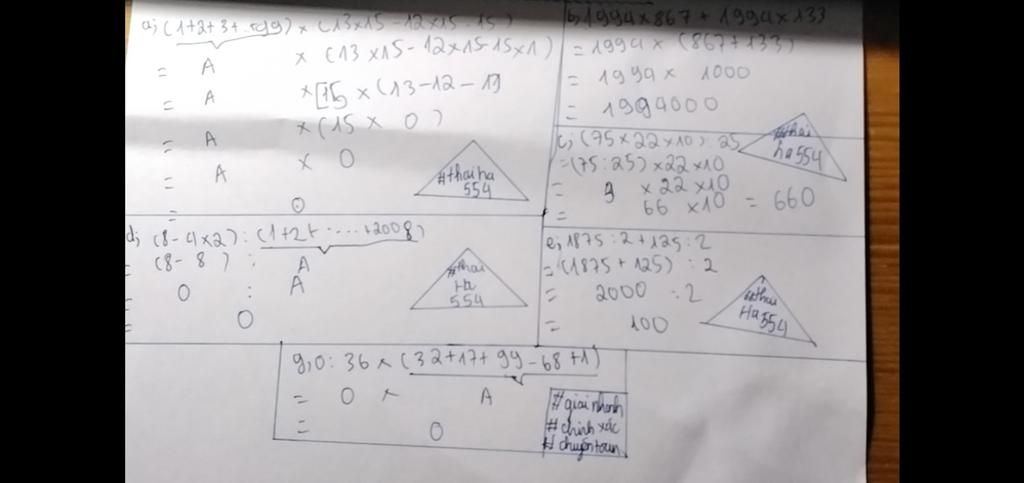 a; (1+2+3+...+99) × (13×15-12×15-15)
= A × (13×15-12×15-15×1)
= A ×[15 × (13-12-1)
= A ×(15 × 0)
= A × 0
= 0
#thaiha
554
b, 1994×867 + 1994×133
= 1994 × (867+133)
= 1994 × 1000
= 1994000
c, (75×22×10) : 25
=(75:25)×22×10
= 3 ×22×10
= 66 ×10 = 660
#thai
ha554
d; (8-4×2) : (1+2+.....+2008)
= (8-8) : A
= 0 : A
= 0
#thai
Ha
554
e, 1875:2+125:2
= (1875+125) :2
= 2000 :2
= 100
#thai
Ha554
g, 0: 36 × (32+17+99-68+1)
= 0 × A
= 0
#giai nhanh
# chính xác
# chuyêntoan